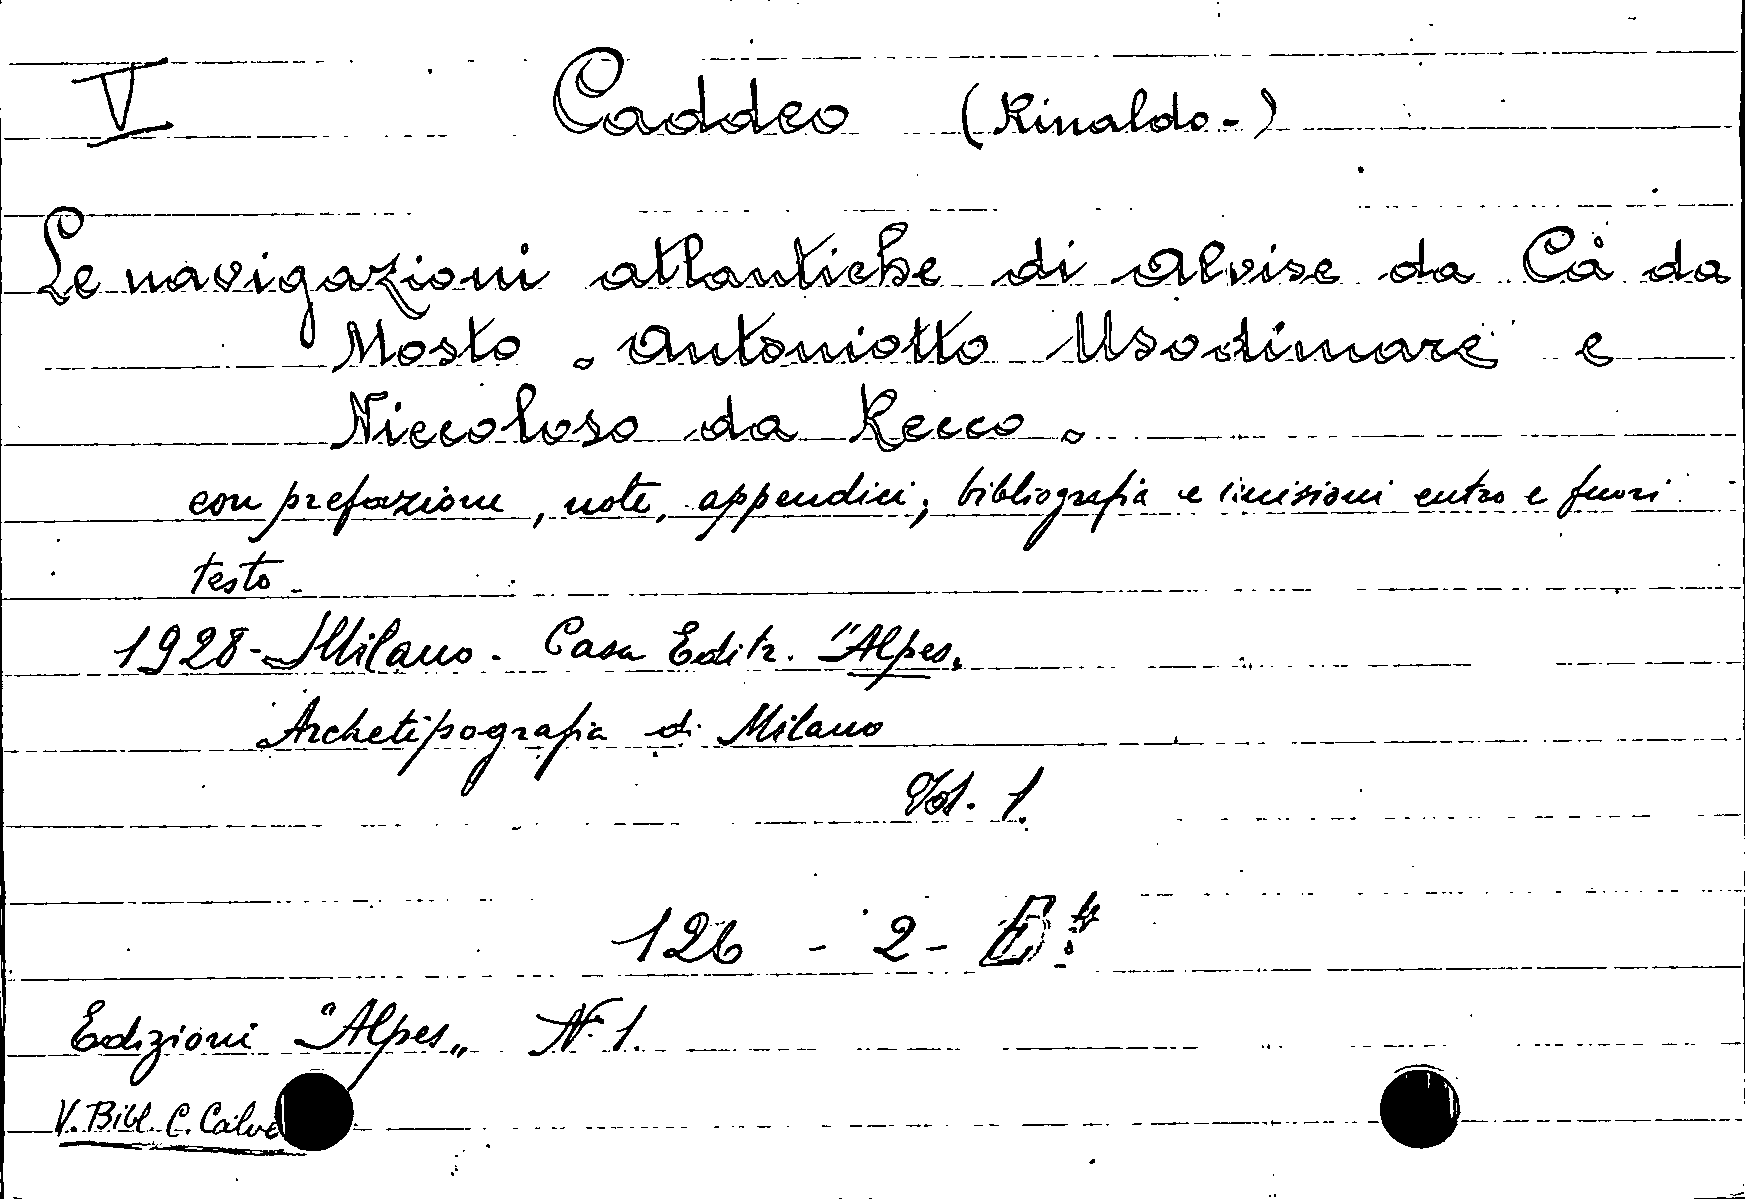 V Caddeo (Rinaldo-)
Le navigazioni atlantiche di Alvise da Cà da
Mosto. Antoniotto Usodimare e
Niccoloso da Recco.
con prefazione, note, appendici, bibliografia e incisioni entro e fuori
testo-
1928-Milano. Casa Editr. "Alpes„
Archetipografia di Milano
Vol. 1.
126 - 2 -
Edizioni "Alpes„ N. 1.
V. Bibl. C. Calve